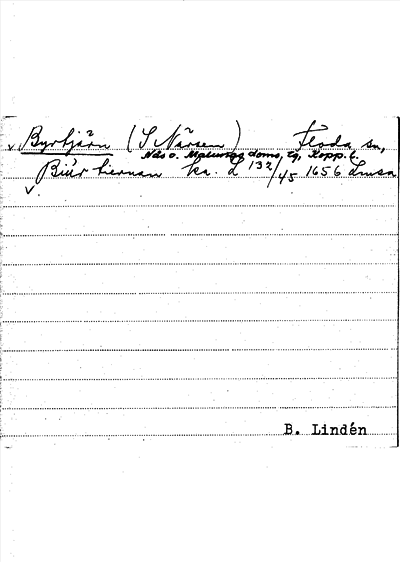 v Byrtjärn (S Närsen) Floda sn,
Nås o. Malungs doms. tg, Kopp. l.
Biur hiernam ka. L 132/45 1656 Lmsa
v.
B. Lindén